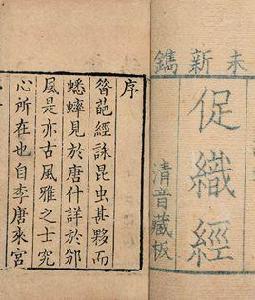 未新鐫
促織經
清音藏板
序
葩經詠昆虫甚夥而
蟋蟀見於唐什詳於邠
風是亦古風雅之士究
心所在也自李唐來宮